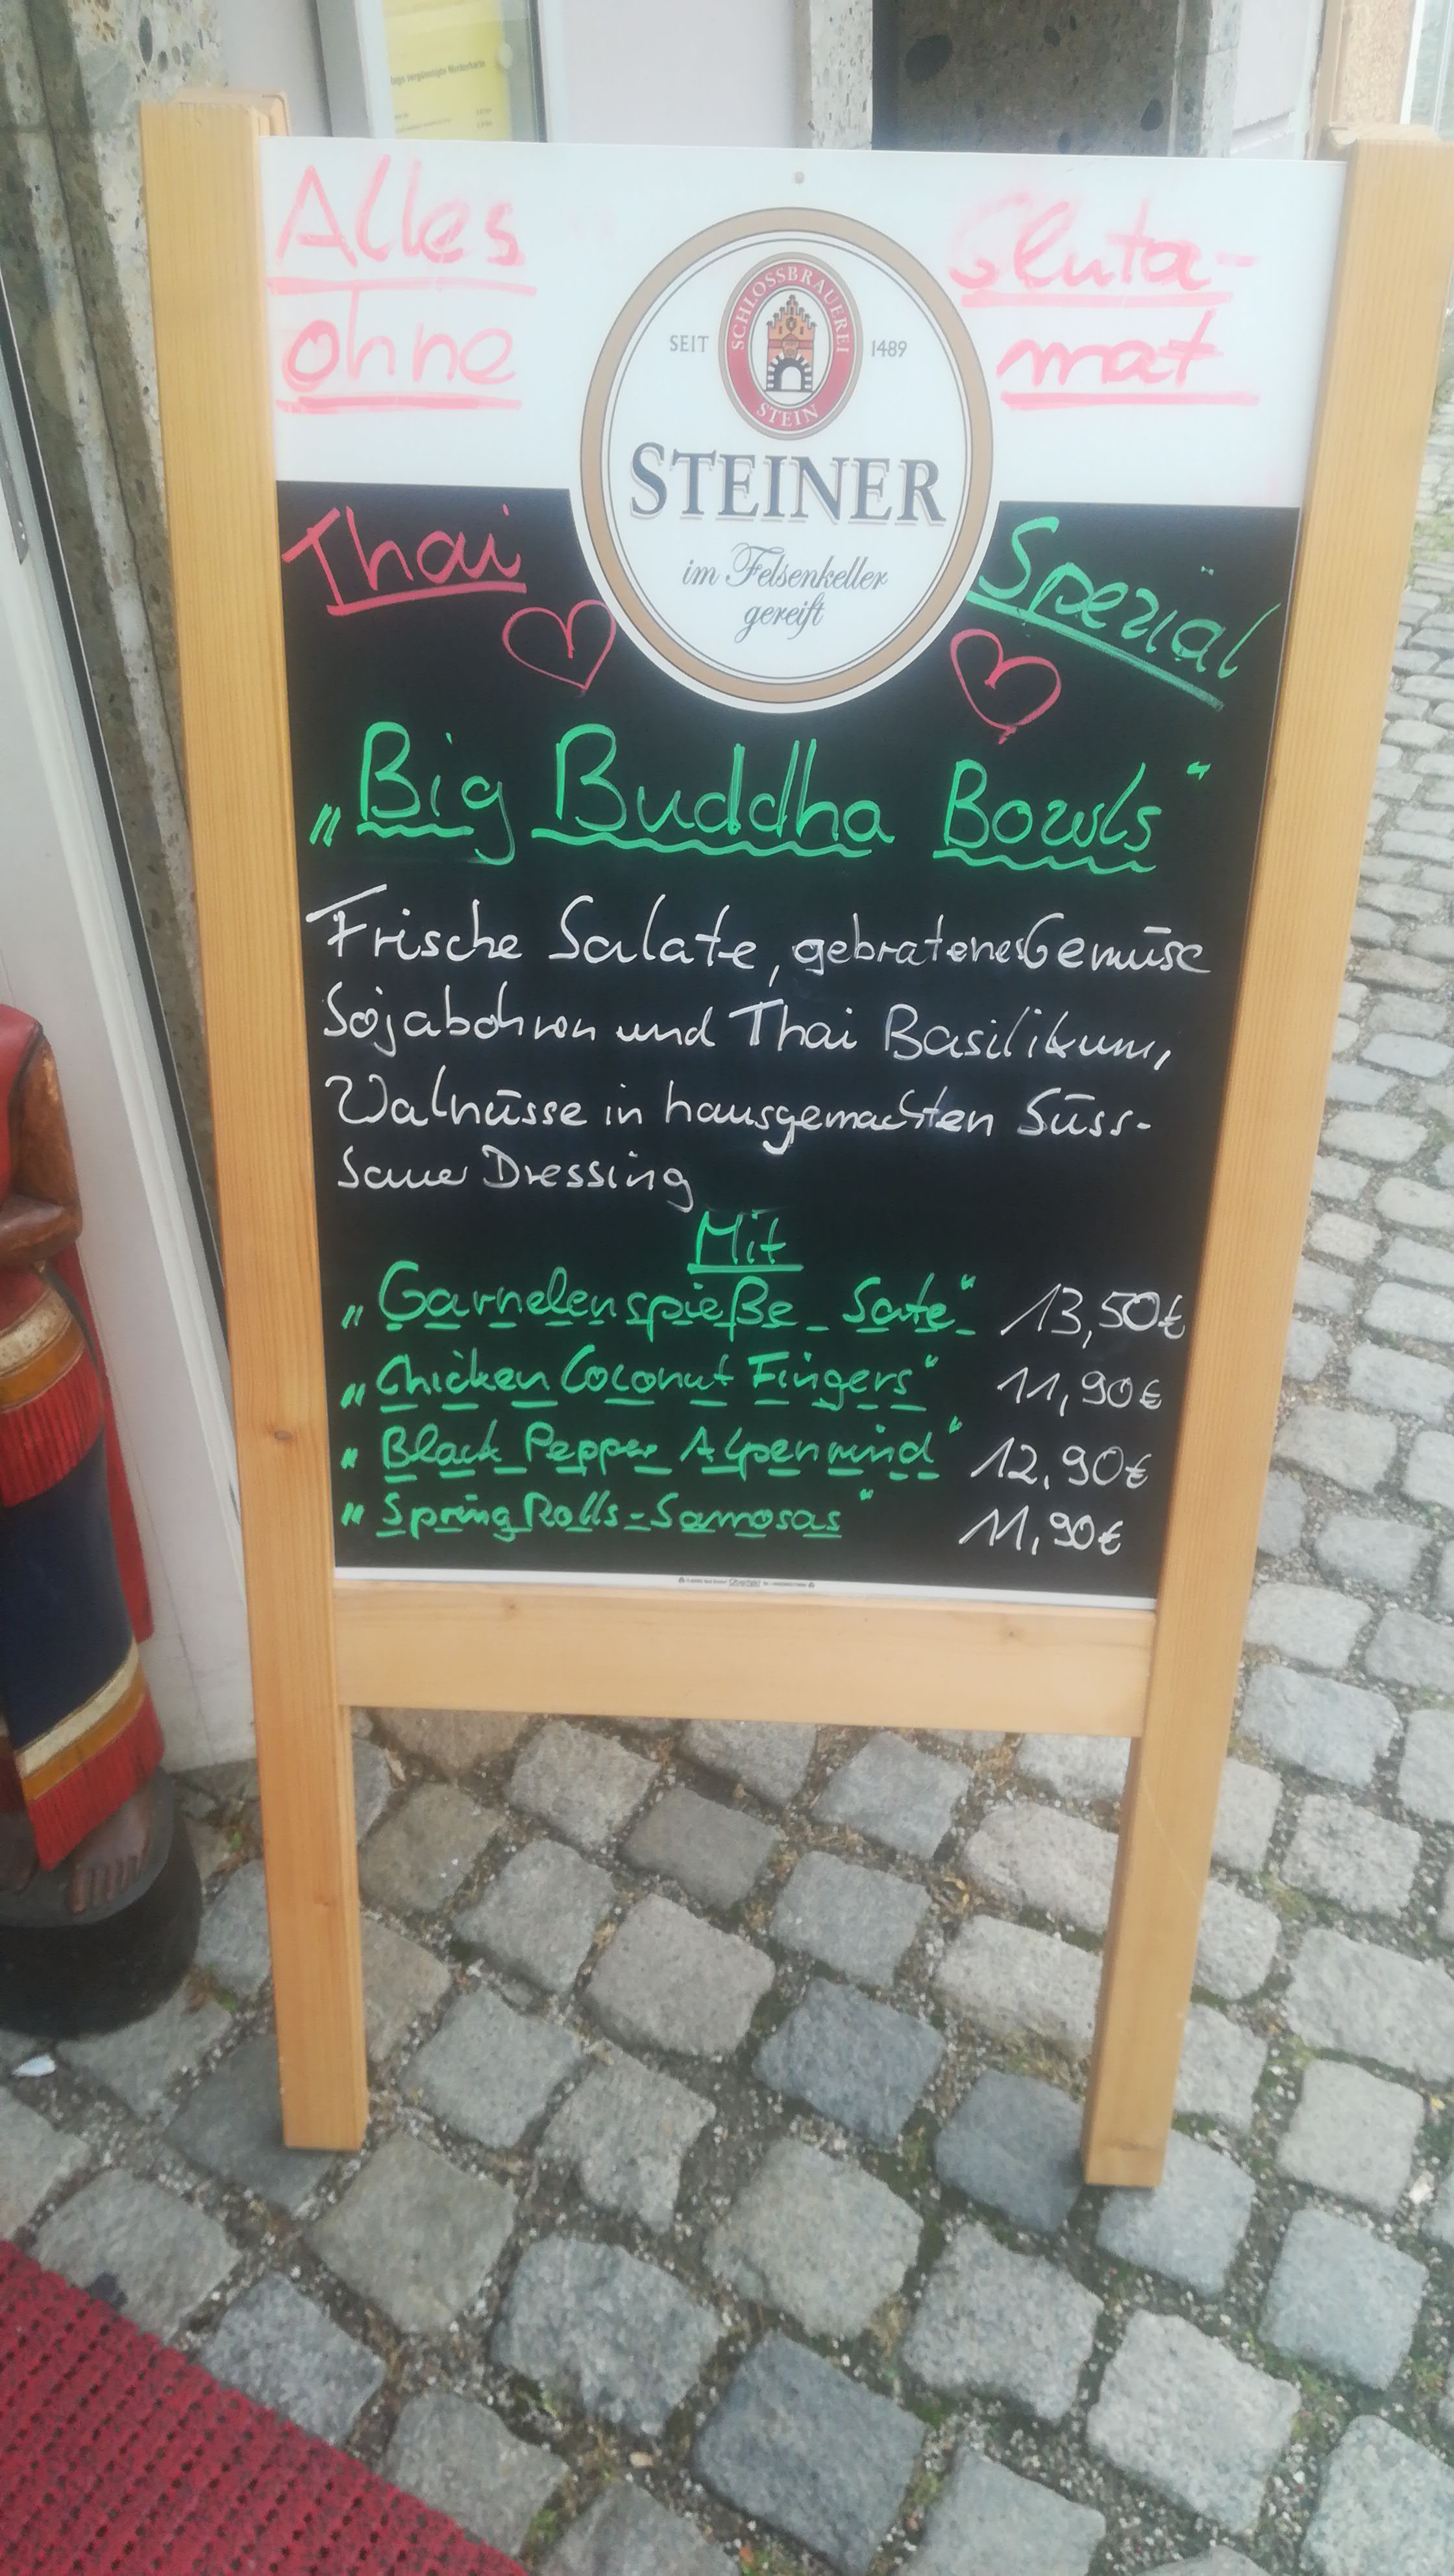 Alles
ohne
Gluta-
mat
SCHLOSSBRAUEREI
STEIN
SEIT 1489
STEINER
im Felsenkeller
gereift
Thai Spezial
„Big Buddha Bowls“
Frische Salate, gebratenes Gemüse
Sojabohnen und Thai Basilikum,
Walnüsse in hausgemachten Süss-
Sauer Dressing
Mit
„Garnelenspieße - Sate“ 13,50€
„Chicken Coconut Fingers“ 11,90€
„Black Pepper Alpenrind“ 12,90€
„Spring Rolls-Samosas“ 11,90€